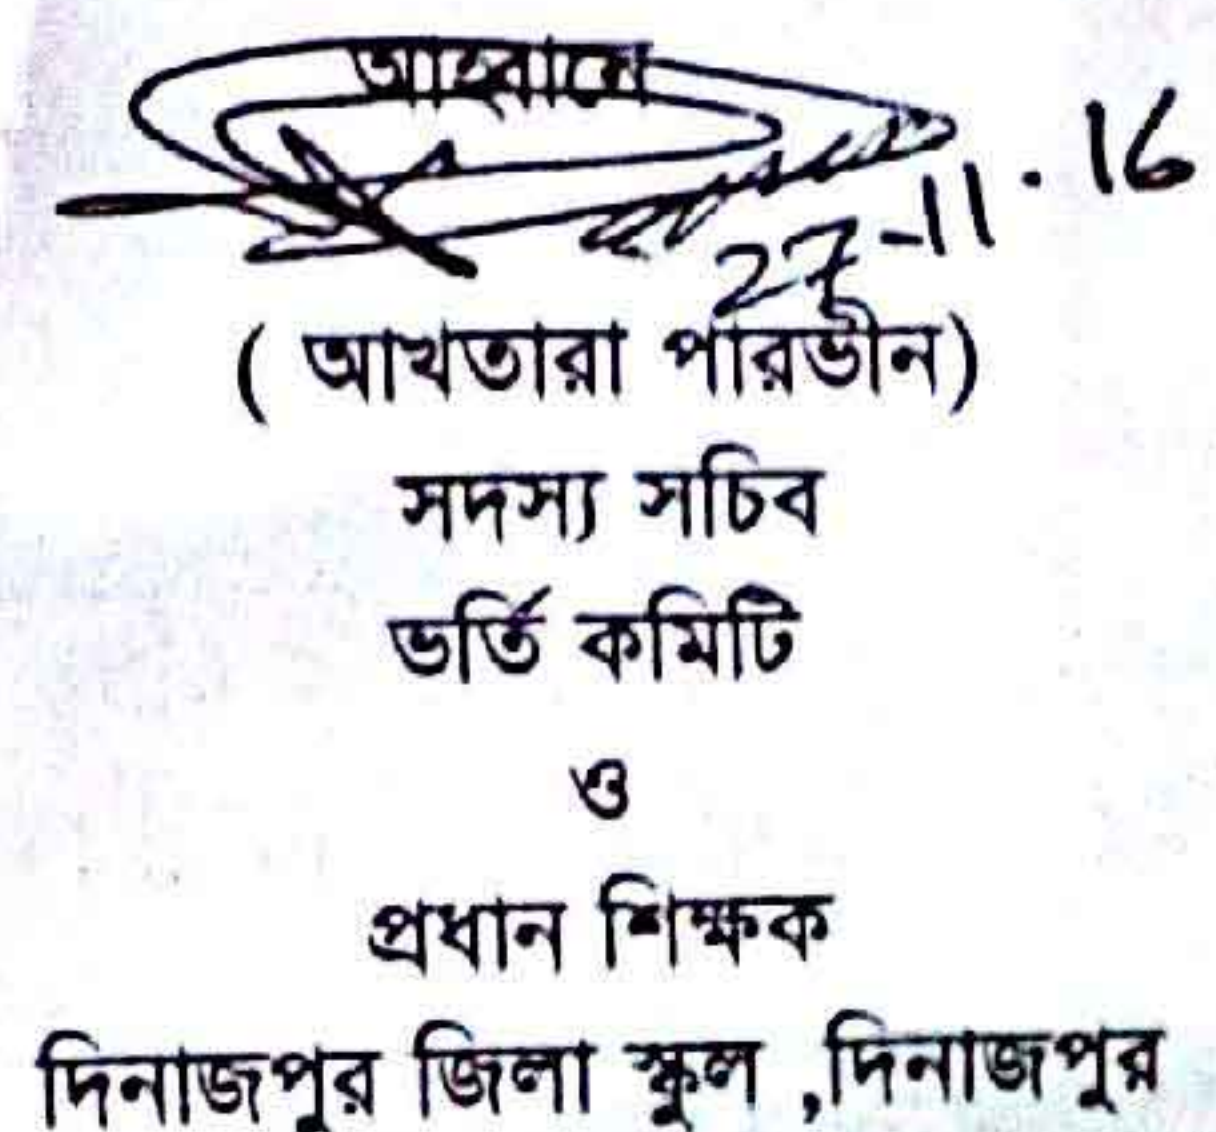 আহবানে
27-11.16
( আখতারা পারভীন)
সদস্য সচিব
ভর্তি কমিটি
ও
প্রধান শিক্ষক
দিনাজপুর জিলা স্কুল ,দিনাজপুর